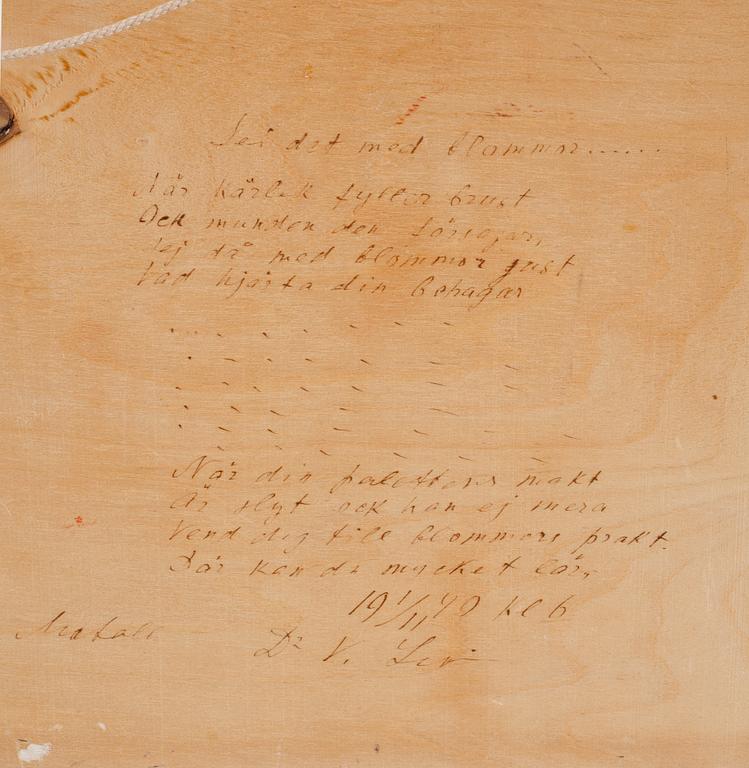 Sei det med blommor......
När kärlek fyller brust
Ock munden den försagar,
Sej då med blommor just
Vad hjärta din behagar
När din palettens makt
Är slyt ock kan ej mera
Vend dig till blommors prakt.
Där kan du mycket lära
19 1/11 49 kl 6
Dr V.